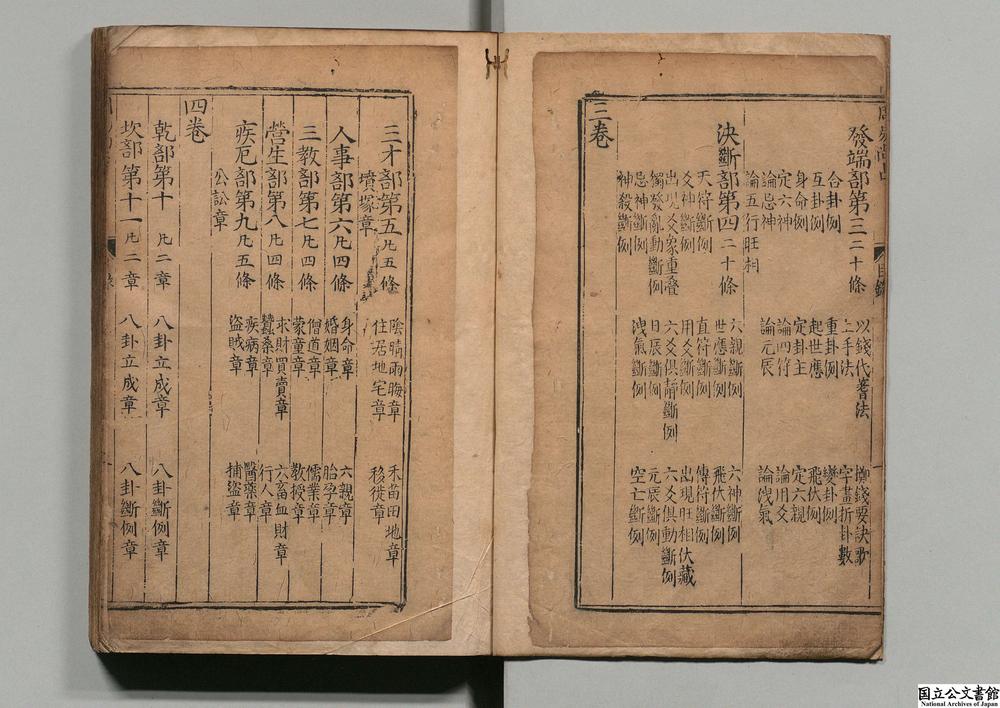 周易尚占
目錄
發端部第三二十條 以錢代蓍法 擲錢要訣歌
上手法 字畫折卦數
合卦例 重卦例 變卦例
互卦例 起世應 飛伏例
身命例 定卦主 定六親
定六神 論四符 論用爻
論忌神 論元辰 論洩氣
論五行旺相
決斷部第四二十條 六親斷例 六神斷例
世應斷例 飛伏斷例
天符斷例 直符斷例 傳符斷例
爻神斷例 用爻斷例 出現旺相伏藏
出現爻象重疊 六爻俱靜斷例 六爻俱動斷例
獨發亂動斷例 日辰斷例 元辰斷例
忌神斷例 洩氣斷例 空亡斷例
神殺斷例
三卷
三才部第五凡五條 陰晴雨晦章 禾苗田地章
墳塚章 住居地宅章 移徙章
人事部第六凡四條 身命章 六親章
婚姻章 胎孕章
三教部第七凡四條 僧道章 儒業章
蒙童章 教授章
營生部第八凡四條 求財買賣章 六畜血財章
蠶桑章 行人章
疾厄部第九凡五條 疾病章 醫藥章
公訟章 盜賊章 捕盜章
四卷
乾部第十凡二章 八卦立成章 八卦斷例章
坎部第十一凡二章 八卦立成章 八卦斷例章
国立公文書館
National Archives of Japan